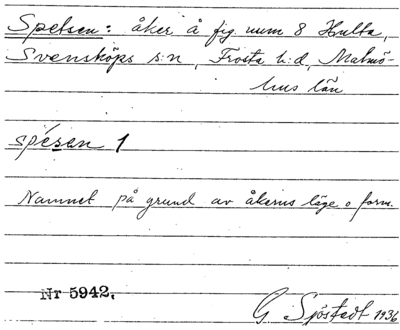 Spetsen: åker å fig num 8 Hulta,
Svensköps s:n, Frosta h:d, Malmö-
hus län
spésen 1
Namnet på grund av åkerns läge o form.
Nr 5942.
G Sjöstedt 1936